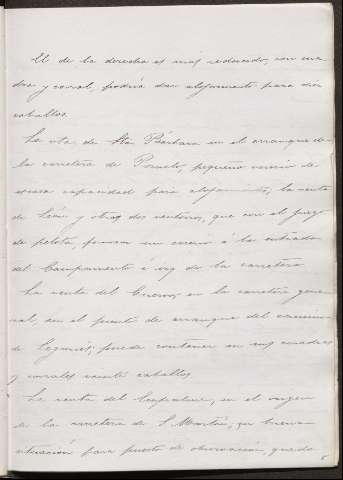 El de la derecha es mas reducido, con cua-
dra y corral, podria dar alojamiento para diez
caballos
La vta. de Sta Bárbara en el arranque de
la carretera de Pozuelo, pequeño recinto de
escasa capacidad para alojamiento; la venta
de León y otros dos ventorros, que con el juego
de pelota, forman un caserio á la entrada
del Campamento é izq de la carretera
La venta del Cuervo, en la carretera gene-
ral, en el punto de arranque del camino
de Leganés, puede contener en sus cuadras
y corrales veinte caballos
La venta del en el origen
de la carretera de S. Martin, en buena
situación para puesto de observación, queda